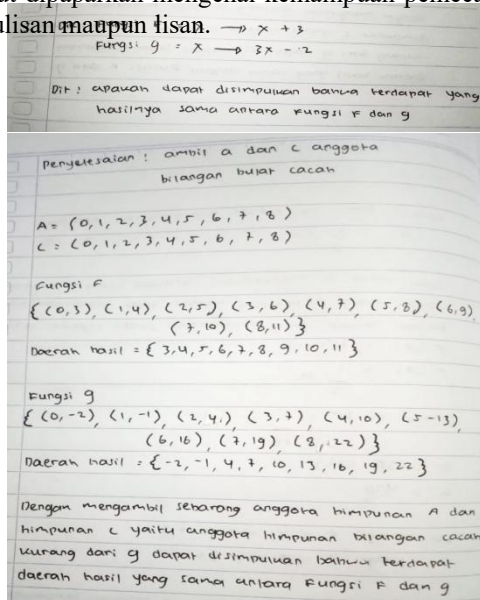 ulisan maupun lisan.
x → x + 3
Fungsi g : x → 3x - 2
Dit : apakah dapat disimpulkan bahwa terdapat yang
hasilnya sama antara fungsi F dan g
Penyelesaian : ambil a dan c anggota
bilangan bulat cacah
A = (0, 1, 2, 3, 4, 5, 6, 7, 8)
C = (0, 1, 2, 3, 4, 5, 6, 7, 8)
Fungsi F
{(0,3), (1,4), (2,5), (3,6), (4,7), (5,8), (6,9),
(7,10), (8,11)}
Daerah hasil = {3,4,5,6,7,8,9,10,11}
Fungsi g
{(0,-2), (1,-1), (2,4), (3,7), (4,10), (5-13),
(6,16), (7,19), (8,22)}
Daerah hasil = {-2,-1,4,7,10,13,16,19,22}
Dengan mengambil sebarang anggota himpunan A dan
himpunan C yaitu anggota himpunan bilangan cacah
kurang dari 9 dapat disimpulkan bahwa terdapat
daerah hasil yang sama antara fungsi F dan g